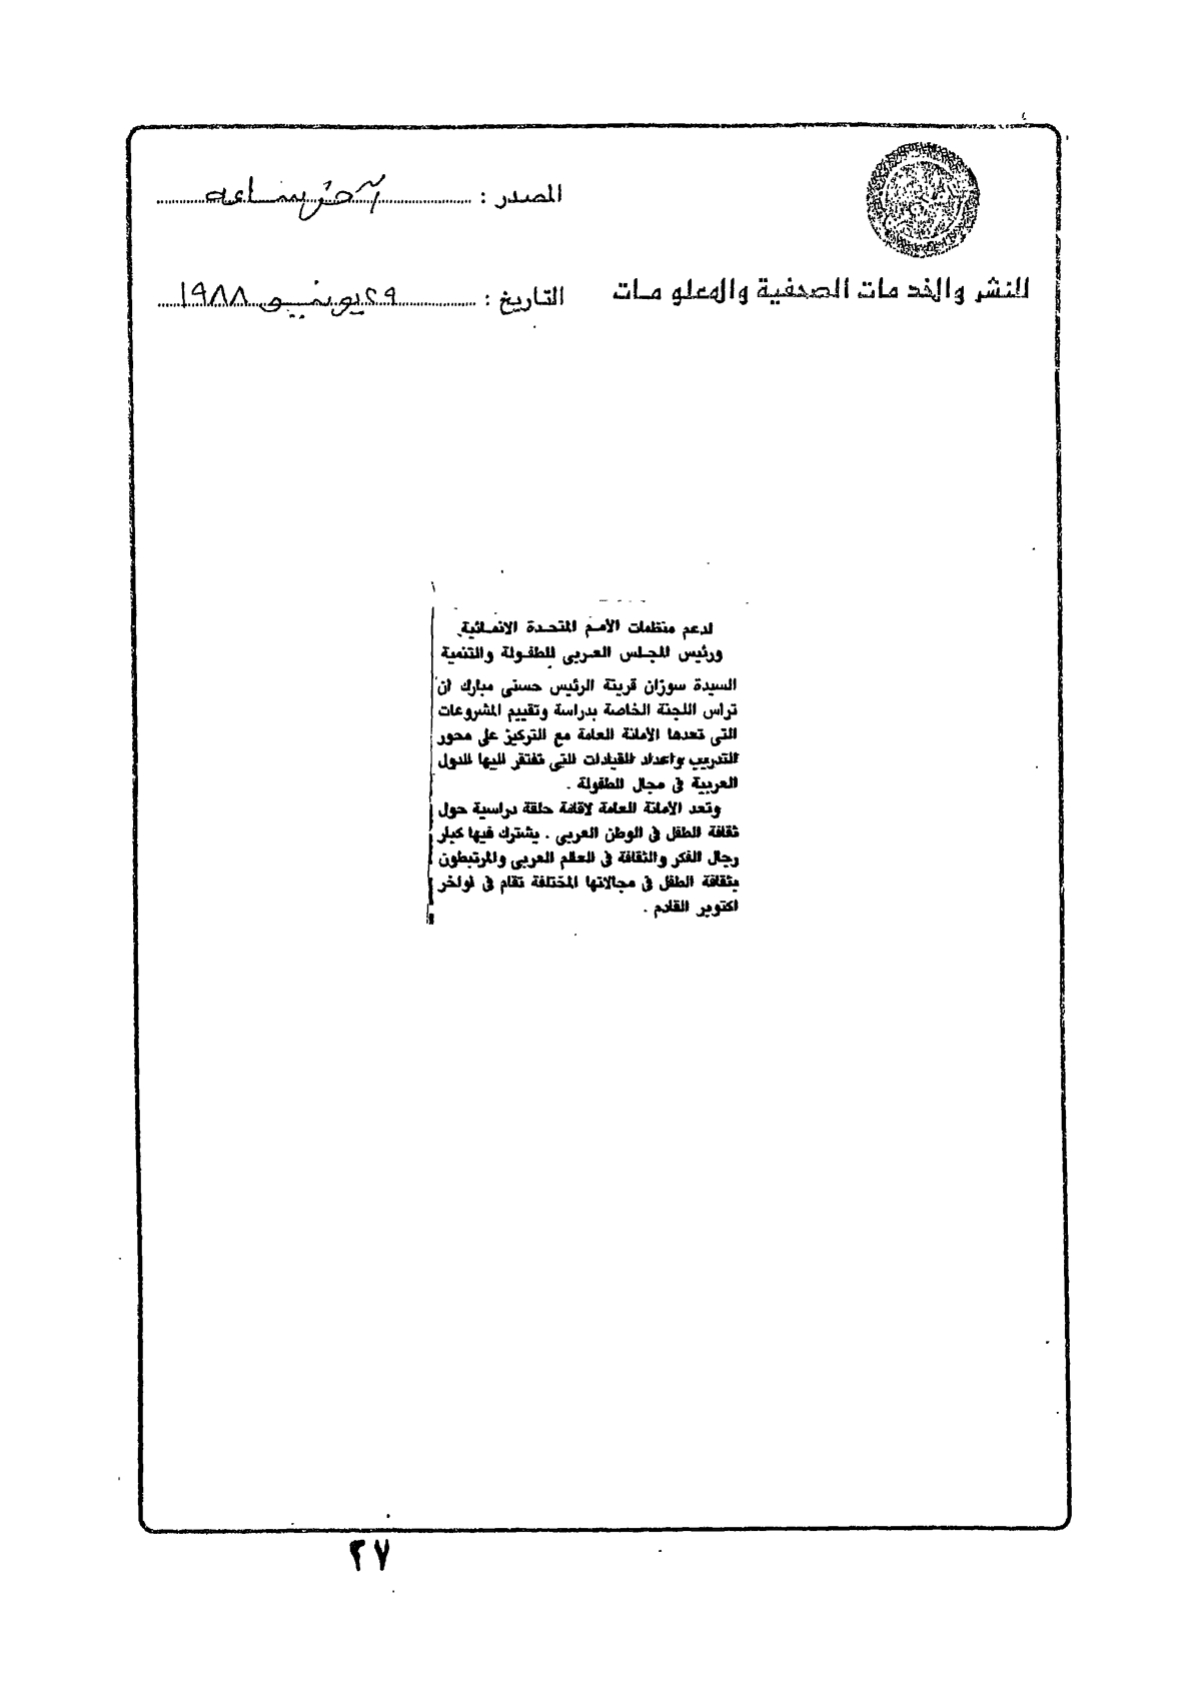 المصدر : آخر ساعة
للنشر والخدمات الصحفية والمعلومات
التاريخ : ٢٩ يونيو ١٩٨٨
لدعم منظمات الأمم المتحدة الانمائية
ورئيس المجلس العربى للطفولة والتنمية
السيدة سوزان قرينة الرئيس حسنى مبارك ان
تراس اللجنة الخاصة بدراسة وتقييم المشروعات
التى تعدها الأمانة العامة مع التركيز على محور
التدريب واعداد القيادات التى تفتقر اليها الدول
العربية فى مجال الطفولة .
وتعد الأمانة العامة لاقامة حلقة دراسية حول
ثقافة الطفل فى الوطن العربى . يشترك فيها كبار
رجال الفكر والثقافة فى العالم العربى والمرتبطون
بثقافة الطفل فى مجالاتها المختلفة تقام فى اواخر
اكتوبر القادم .
٢٧